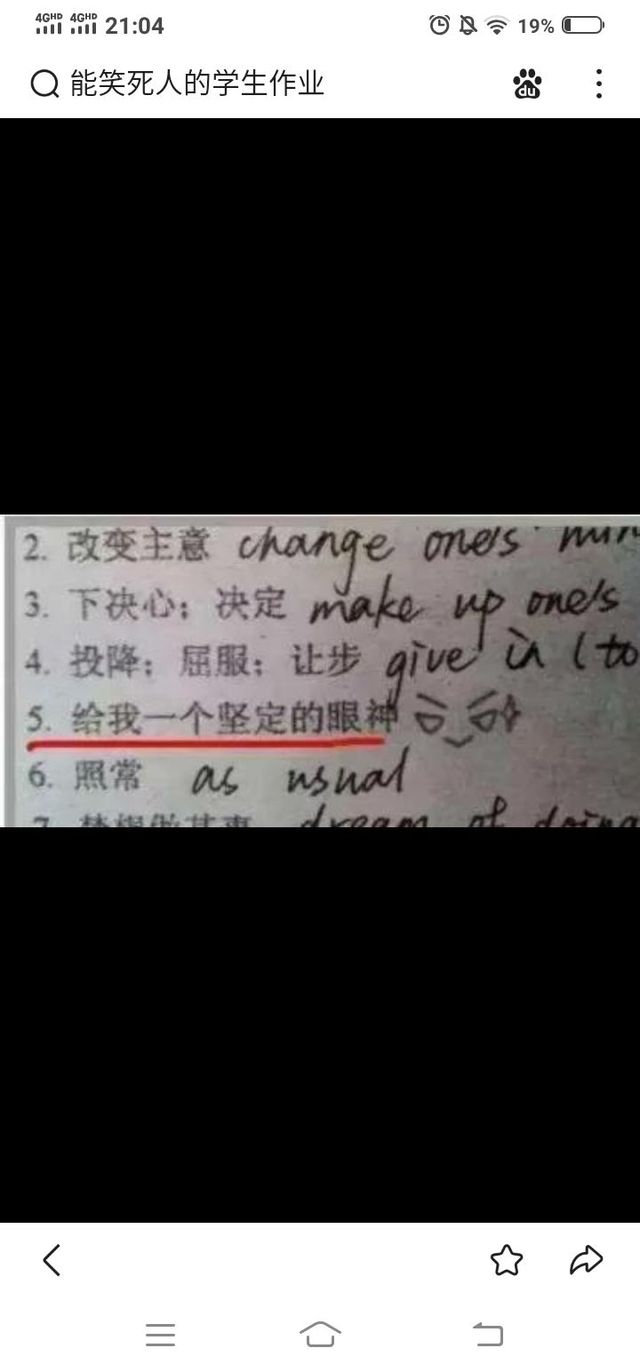 4GHD 4GHD 21:04 19%
能笑死人的学生作业 du
2. 改变主意 change one's
3. 下决心；决定 make up one's
4. 投降；屈服；让步 give in (to
5. 给我一个坚定的眼神
6. 照常 as usual
7. 梦想做某事 dream of doing